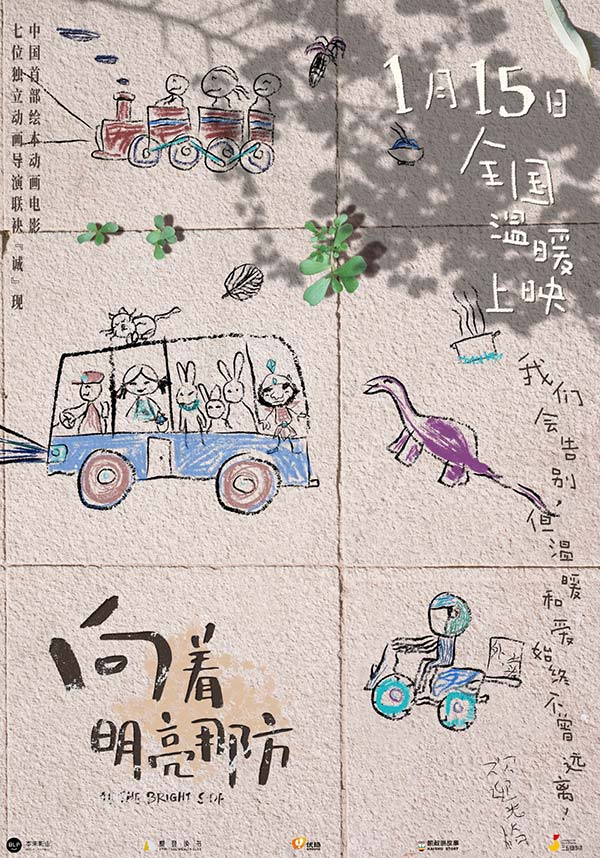 中国首部绘本动画电影
七位独立动画导演联袂『诚』现
1月15日
全国
温暖
上映
我们会告别，但温暖和爱始终不曾远离！
外卖
欢迎光临
向着
明亮那方
TO THE BRIGHT SIDE
BLP
本来影业
优酷
凯叔讲故事
KAISHU STORY